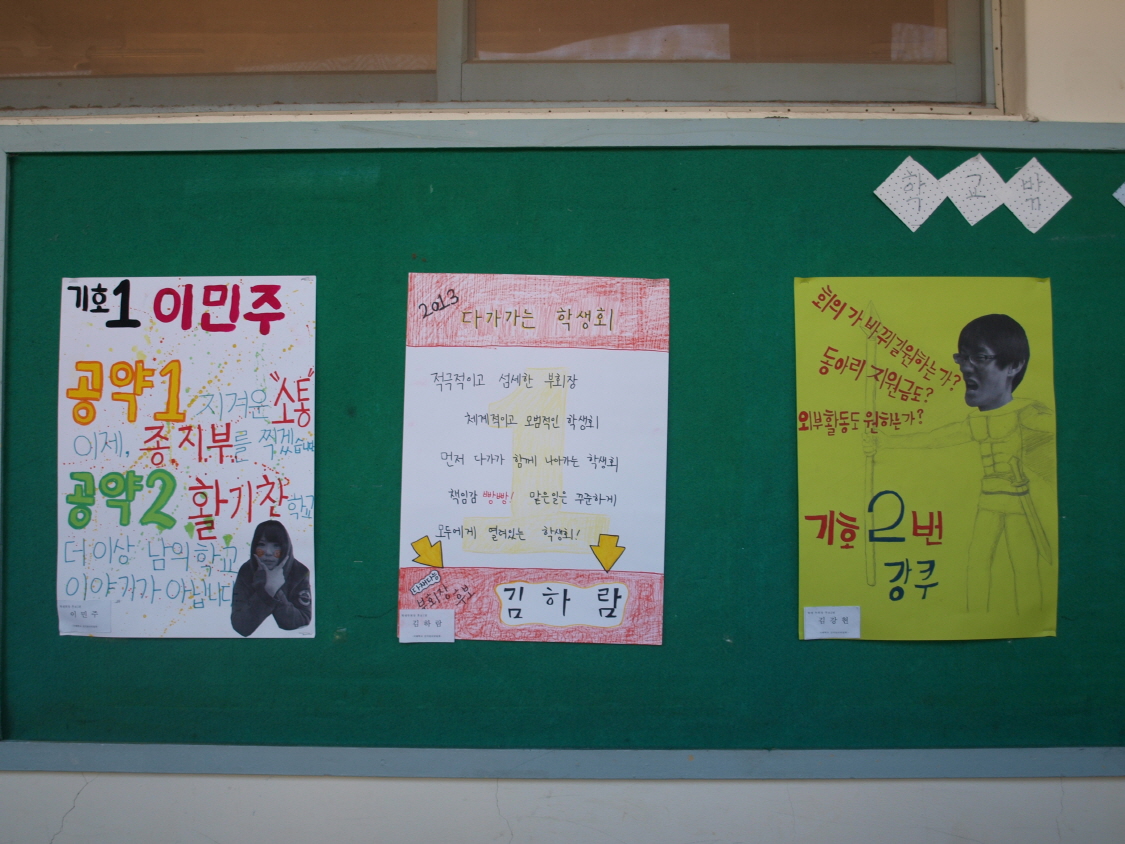 학교밖
기호1 이민주
공약1 지겨운 "소통"
이제, 종.지부를 찍겠습니
공약2 활기찬 학교
더 이상 남의 학교
이야기가 아닙니다
이민주
2013
다가가는 학생회
적극적이고 섬세한 부회장
체계적이고 모범적인 학생회
먼저 다가가 함께 나아가는 학생회
책임감 빵빵! 맡은일은 꾸준하게
모두에게 열려있는 학생회!
1
다재다능
부회장 후보
김하람
김하람
회의가 바뀌길원하는가?
동아리 지원금도?
외부활동도 원하는가?
기호 2번
강쿠
김강현